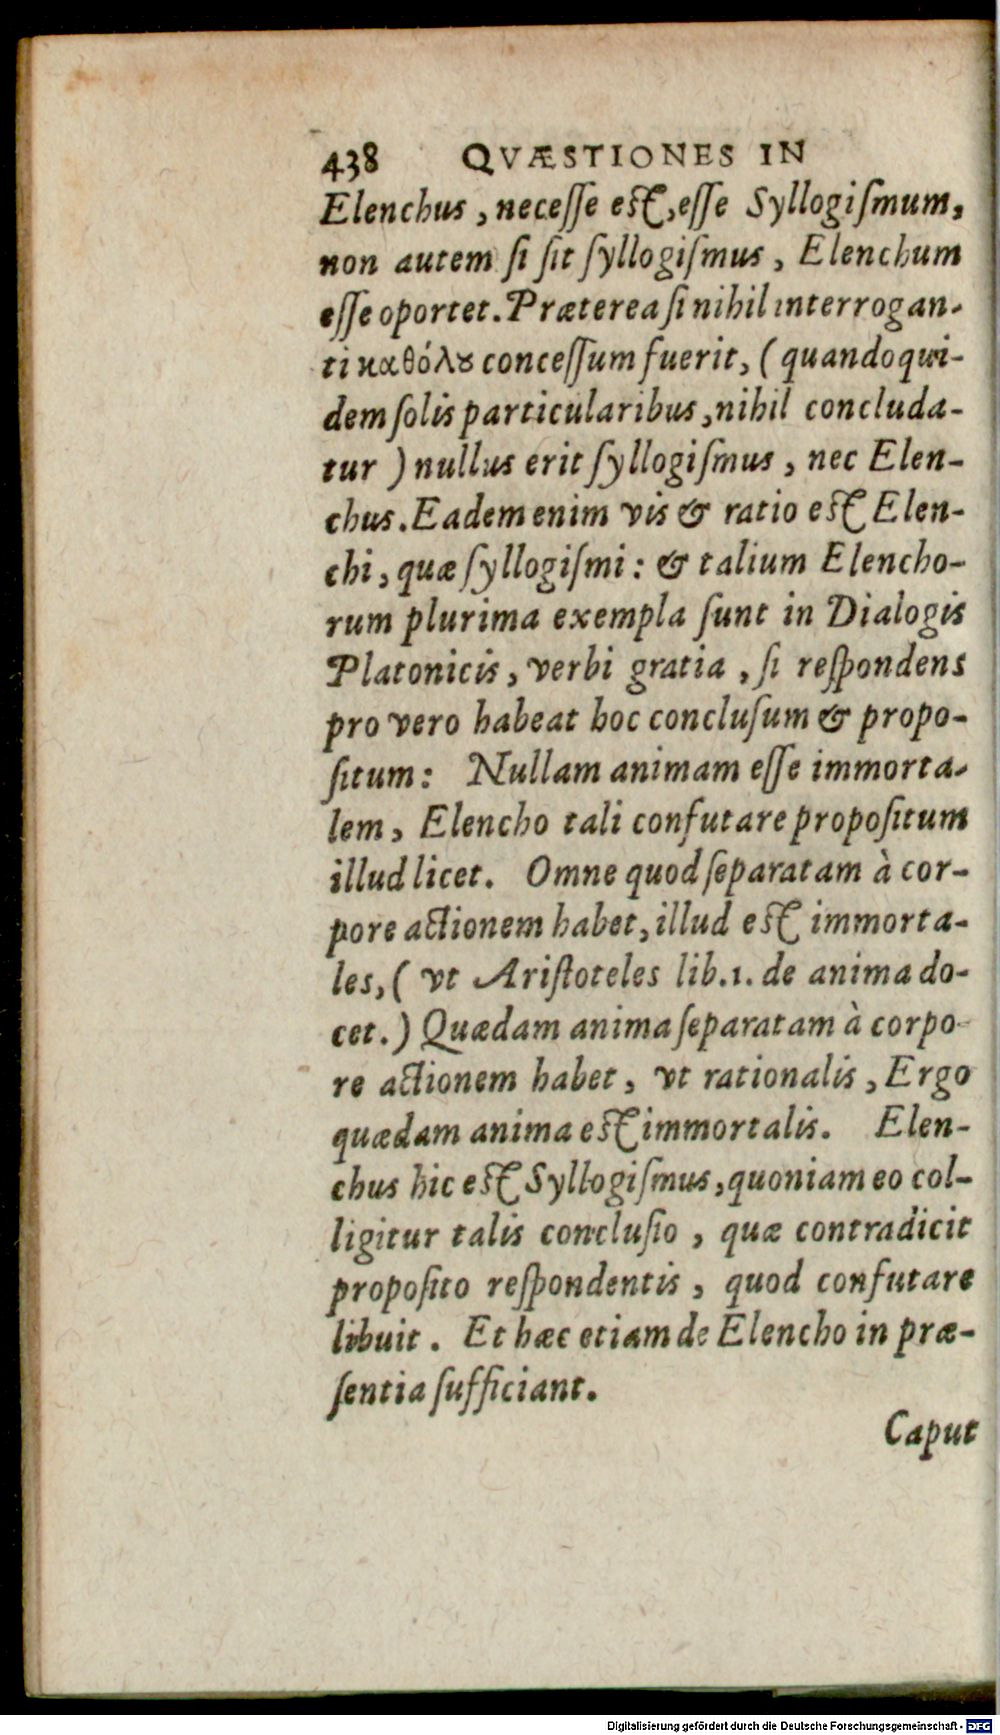 438 QVÆSTIONES IN
Elenchus, necesse est, esse Syllogismum,
non autem si sit syllogismus, Elenchum
esse oportet. Præterea si nihil interrogan-
ti καθόλȣ concessum fuerit, (quandoqui-
dem solis particularibus, nihil concluda-
tur) nullus erit syllogismus, nec Elen-
chus. Eadem enim vis & ratio est Elen-
chi, quæ syllogismi: & talium Elencho-
rum plurima exempla sunt in Dialogis
Platonicis, verbi gratia, si respondens
pro vero habeat hoc conclusum & propo-
situm: Nullam animam esse immorta-
lem, Elencho tali confutare propositum
illud licet. Omne quod separatam à cor-
pore actionem habet, illud est immorta-
les, (vt Aristoteles lib.1. de anima do-
cet.) Quædam anima separatam à corpo-
re actionem habet, vt rationalis, Ergo
quædam anima est immortalis. Elen-
chus hic est Syllogismus, quoniam eo col-
ligitur talis conclusio, quæ contradicit
proposito respondentis, quod confutare
libuit. Et hæc etiam de Elencho in præ-
sentia sufficiant.
Caput
Digitalisierung gefördert durch die Deutsche Forschungsgemeinschaft - DFG